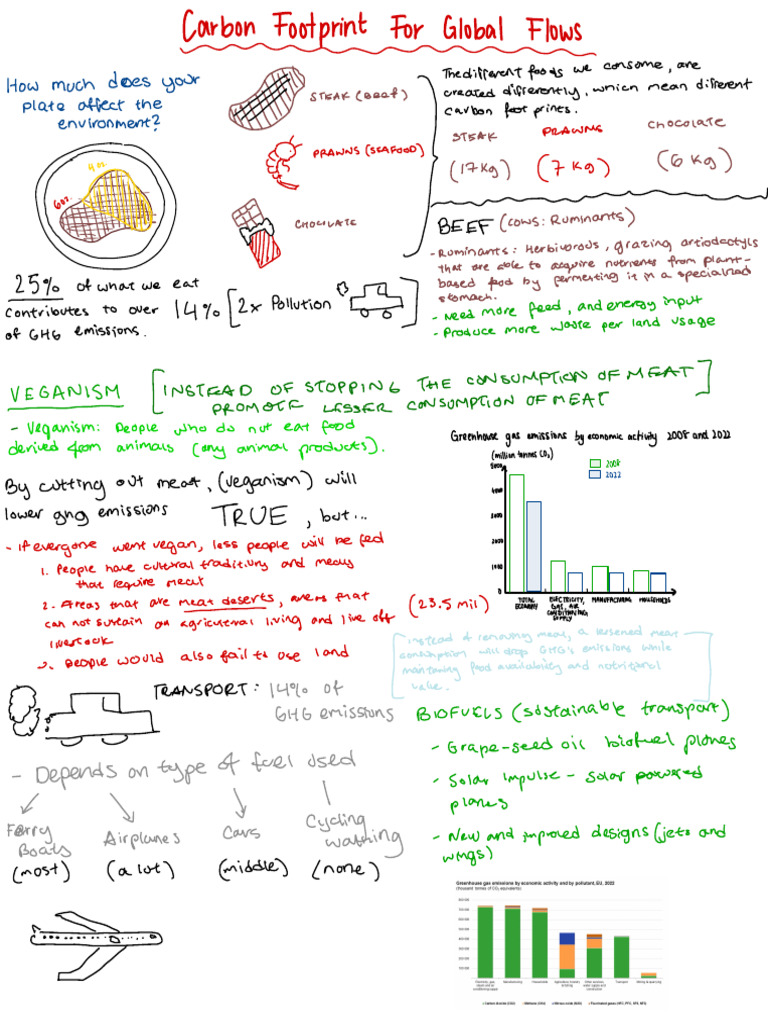 Carbon Footprint For Global Flows
How much does your
plate affect the
environment?
4 oz.
6oz.
STEAK (BEEF)
PRAWNS (SEAFOOD)
CHOCOLATE
The different foods we consome, are
created differently, which mean different
carbon foot prints.
STEAK PRAWNS CHOCOLATE
(17 Kg) (7 Kg) (6 Kg)
BEEF (cows: Ruminants)
- Ruminants: Herbivorous, grazing artiodactyls
that are able to acquire nutrients from plant-
based food by fermenting it in a specialized
stomach.
- Need more feed, and energy input
- Produce more waste per land usage
25% of what we eat
contributes to over 14% [2x Pollution ]
of GHG emissions.
VEGANISM [INSTEAD OF STOPPING THE CONSUMPTION OF MEAT]
PROMOTE LESSER CONSUMPTION OF MEAT
- Veganism: People who do not eat food
derived from animals (any animal products).
By cutting out meat, (veganism) will
lower ghg emissions TRUE, but...
- If everyone went vegan, less people will be fed
1. People have cultural traditions and meals
that require meat
2. Areas that are meat deserts, areas that
can not sustain an agricultural living and live off
livestock
3. People would also fail to use land
Greenhouse gas emissions by economic activity 2008 and 2022
(million tonnes CO2)
2008
2022
5000
4000
3000
2000
1000
0
TOTAL ECONOMY
ELECTRICITY, GAS, AIR CONDITIONING SUPPLY
MANUFACTURING
HOUSEHOLDS
(23.5 mil)
Instead of removing meat, a lessened meat
consumption will drop GHG's emissions while
maintaining food availability and nutritional
value.
TRANSPORT: 14% of
GHG emissions
- Depends on type of fuel used
Ferry Boats
Airplanes
Cars
Cycling walking
(most) (a lot) (middle) (none)
BIOFUELS (sustainable transport)
- Grape-seed oil biofuel planes
- Solar Impulse - solar powered
planes
- New and improved designs (jets and
wings)
Greenhouse gas emissions by economic activity and by pollutant, EU, 2022
(thousand tonnes of CO2 equivalents)